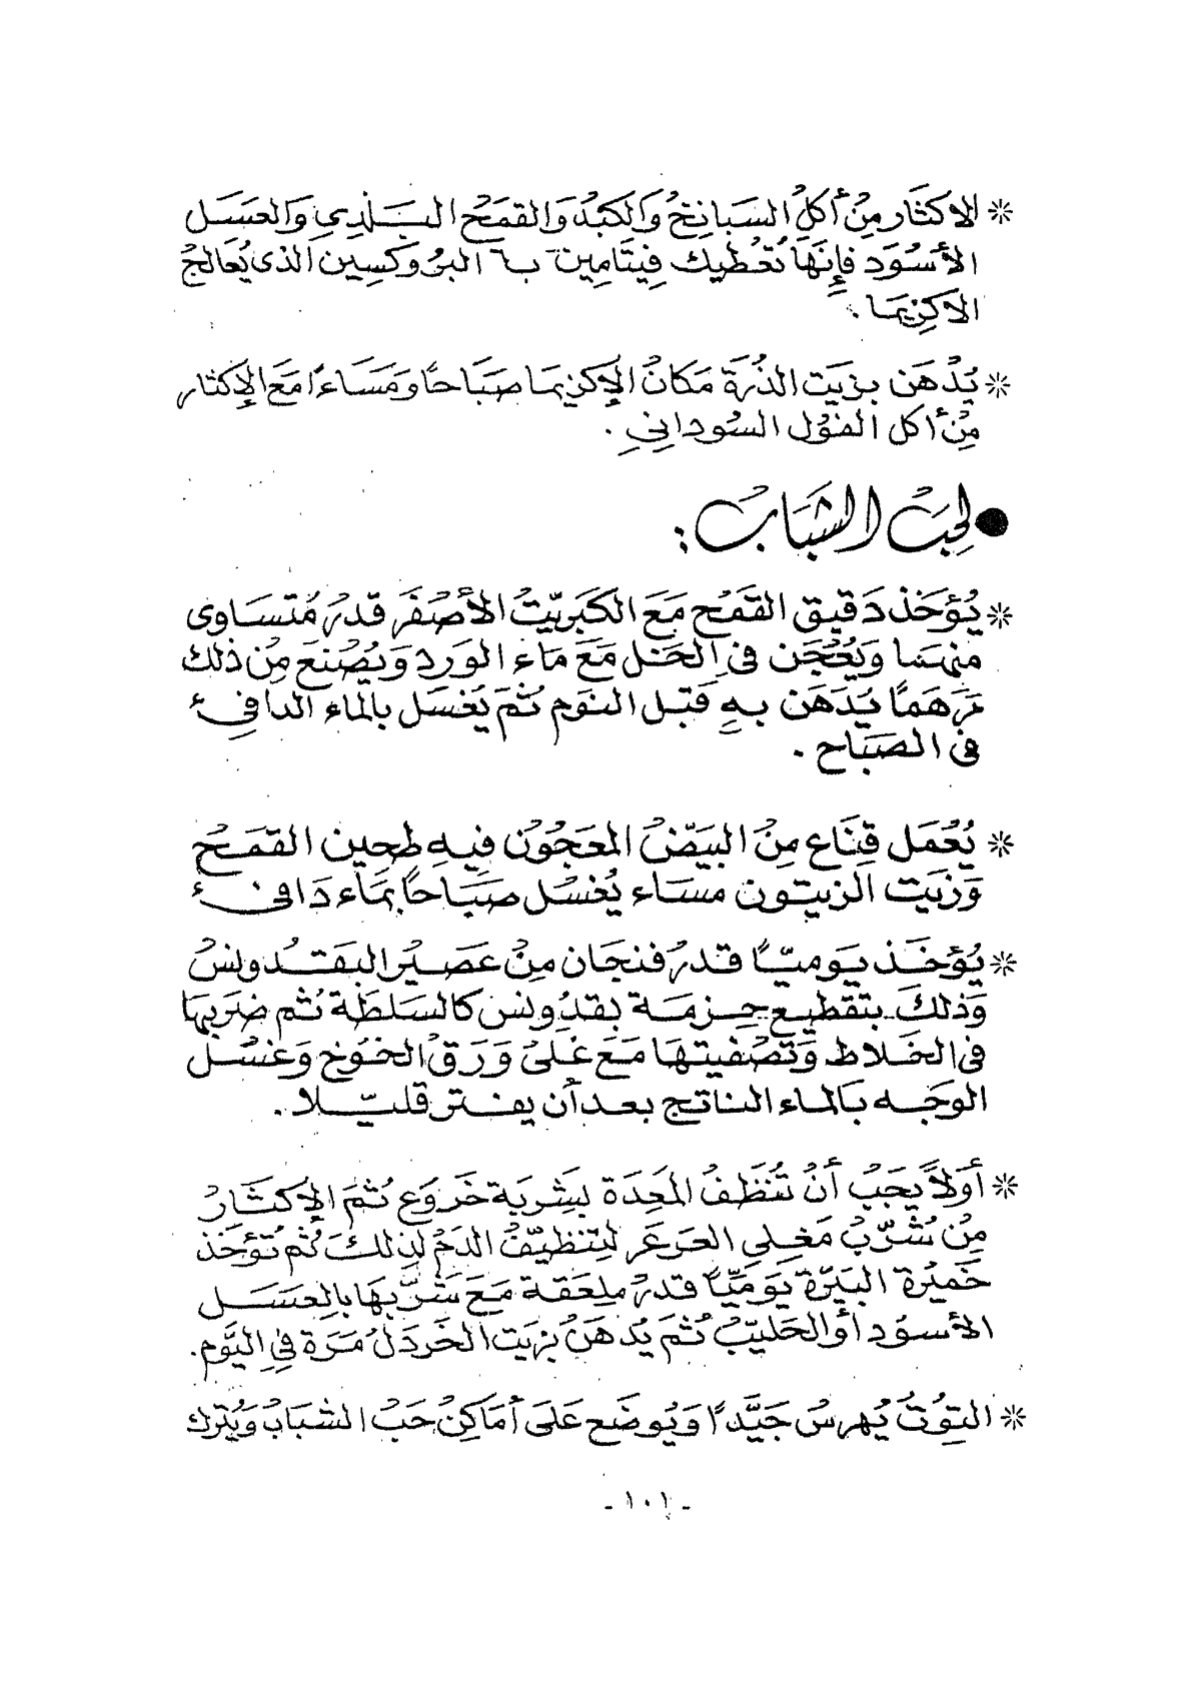 * الاكثار من أكل السبانخ والكبد والقمح البلدي والعسل
الأسود فإنها تعطيك فيتامين ب٦ البروكسين الذى يعالج
الاكزيما .
* يُدهن بزيت الذرة مكان الإكزيما صباحًا ومساءً مع الإكثار
من أكل الفول السوداني .
● لحب الشباب :
* يُؤخذ دقيق القمح مع الكبريت الأصفر قدر متساوى
منهما ويُعجن فى الخل مع ماء الورد ويُصنع من ذلك
مرهمًا يُدهن به قبل النوم ثم يغسل بالماء الدافئ
فى الصباح .
* يُعمل قناع من البيض المعجون فيه طحين القمح
وزيت الزيتون مساء يُغسل صباحًا بماء دافئ
* يُؤخذ يوميًا قدر فنجان من عصير البقدونس
وذلك بتقطيع حزمة بقدونس كالسلطة ثم ضربها
فى الخلاط وتصفيتها مع غلى ورق الخوخ وغسل
الوجه بالماء الناتج بعد أن يفتر قليلا .
* أولاً يجب أن تُنظف المعدة بشربة خروع ثم الإكثار
من شرب مغلي العرعر لتنظيف الدم لذلك ثم تؤخذ
خميرة البيرة يوميًا قدر ملعقة مع شربها بالعسل
الأسود أو الحليب ثم يُدهن بزيت الخردل مرة في اليوم .
* التوت يُهرس جيّدًا ويُوضع على أماكن حب الشباب ويُترك
- ١٠١ -